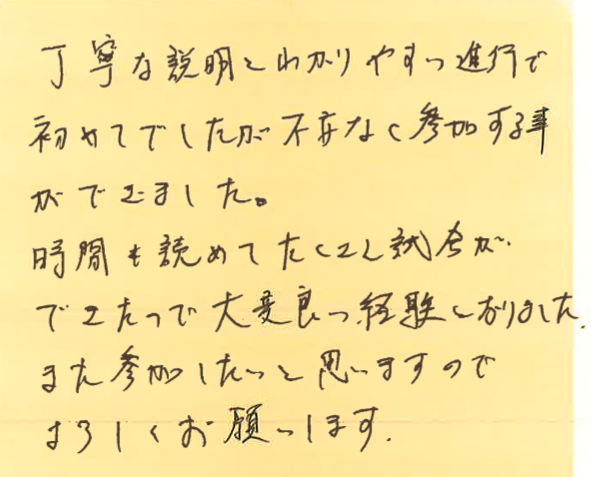 丁寧な説明とわかりやすい進行で
初めてでしたが不安なく参加する事
ができました。
時間も読めてたくさん試合が
できたので大変良い経験になりました.
また参加したいと思いますので
よろしくお願いします.